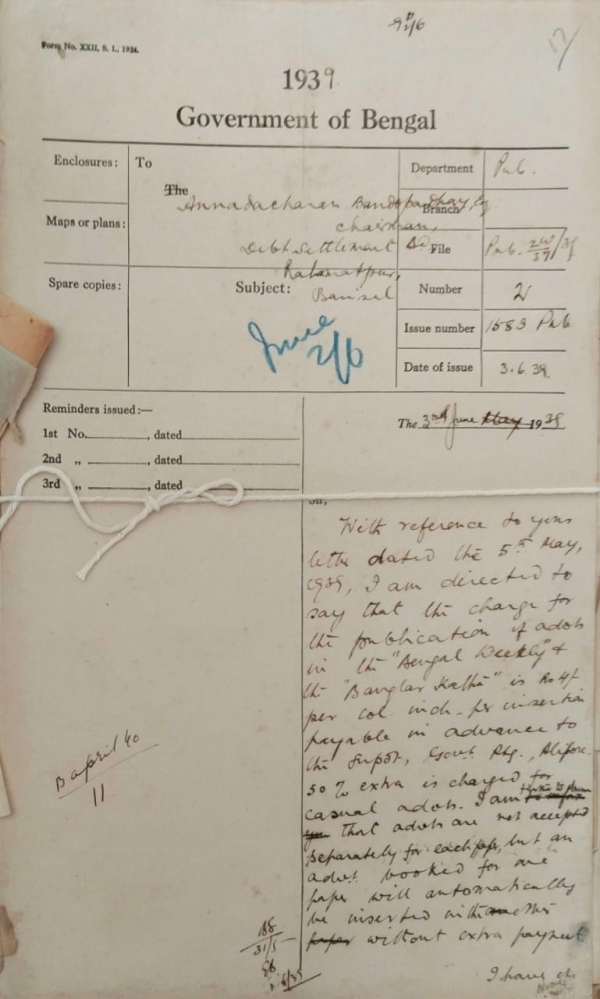 Form No. XXII, S. I., 1924.
1939
Government of Bengal
Enclosures:
Maps or plans:
Spare copies:
To
The
Annadacharan Bandopadhay, Esq
Chairman,
Debt Settlement Bd.
Rahamatpur,
Barisal
Subject:
June
2/6
Department Pub.
Branch
File Pub. 2W/37/39
Number 2
Issue number 1583 Pub
Date of issue 3.6.39.
Reminders issued:—
1st No. , dated
2nd „ , dated
3rd „ , dated
The 3rd June May 1939
Sir,
With reference to your
letter dated the 5th May,
1939, I am directed to
say that the charge for
the publication of advts
in the "Bengal Weekly" &
the "Banglar Katha" is Rs 4/-
per col. inch. per insertion
payable in advance to
the Supdt., Govt. Ptg., Alipore.
50 % extra is charged for
casual advts. I am
that advts are not accepted
separately for each paper, but an
advt. booked for one
paper will automatically
be inserted in the other
paper without extra payment
I have etc
B April 40
11
31/5